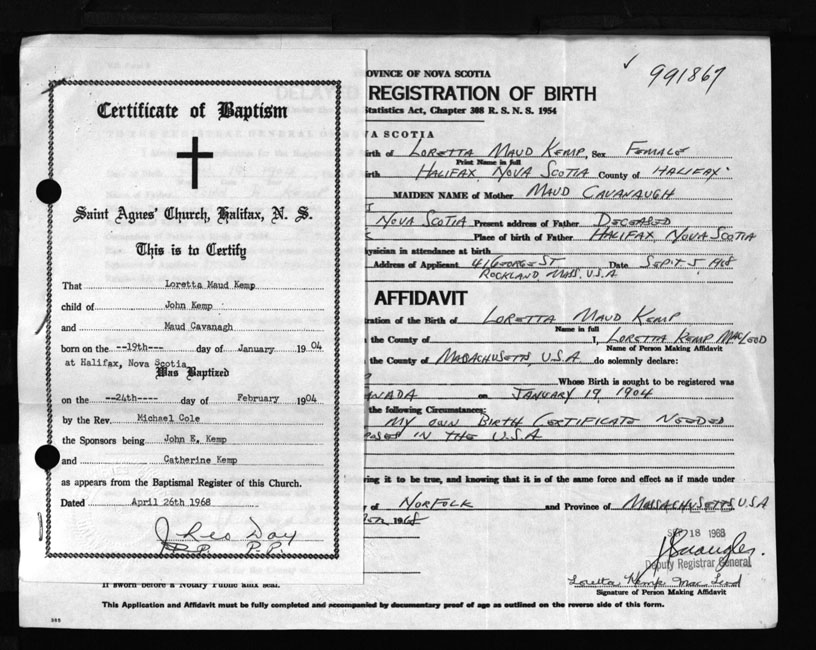 Certificate of Baptism
Saint Agnes' Church, Halifax, N. S.
This is to Certify
That Loretta Maud Kemp
child of John Kemp
and Maud Cavanagh
born on the --19th---- day of January 1904
at Halifax, Nova Scotia
Was Baptized
on the --24th---- day of February 1904
by the Rev. Michael Cole
the Sponsors being John E. Kemp
and Catherine Kemp
as appears from the Baptismal Register of this Church.
Dated April 26th 1968
J Leo Day
P.P. P.P.
OVINCE OF NOVA SCOTIA
991867
DELAYED REGISTRATION OF BIRTH
Statistics Act, Chapter 308 R. S. N. S. 1954
VA SCOTIA
irth of LORETTA MAUD KEMP, Sex FEMALE
Print Name in full
irth HALIFAX, NOVA SCOTIA County of HALIFAX
MAIDEN NAME of Mother MAUD CAVANAUGH
NOVA SCOTIA Present address of Father DECEASED
Place of birth of Father HALIFAX, NOVA SCOTIA
ysician in attendance at birth
Address of Applicant 416 GEORGE ST Date SEPT. 5
ROCKLAND, MASS. U.S.A
AFFIDAVIT
ration of the Birth of LORETTA MAUD KEMP
Name in full
the County of I, LORETTA KEMP MACLEOD
Name of Person Making Affidavit
the County of MASACHUSETTS, U.S.A do solemnly declare:
Whose Birth is sought to be registered was
ANADA on JANUARY 19, 1904
the following Circumstances:
MY OWN BIRTH CERTIFICATE NEEDED
POSES IN THE U.S.A
ing it to be true, and knowing that it is of the same force and effect as if made under
of NORFOLK and Province of MASSACHUSETTS, U.S.A
1968
SEP 18 1968
Deputy Registrar General
Loretta Kemp Mac Leod
Signature of Person Making Affidavit
If sworn before a Notary Public affix seal.
This Application and Affidavit must be fully completed and accompanied by documentary proof of age as outlined on the reverse side of this form.